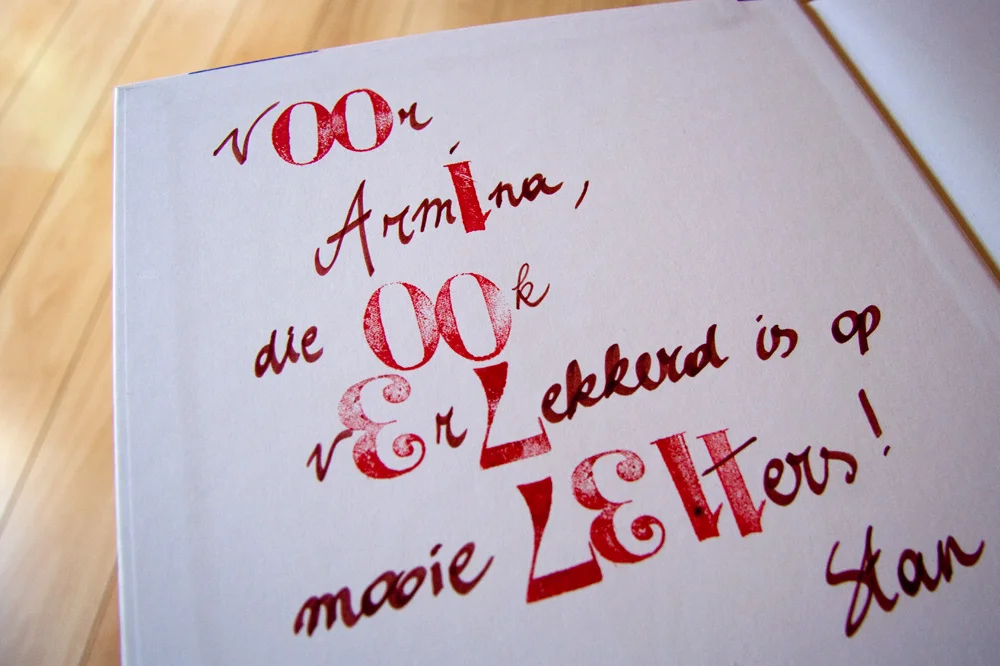 vOOr
Armina,
die OOk
vErLekkerd is op
mooie LEtters!
Stan